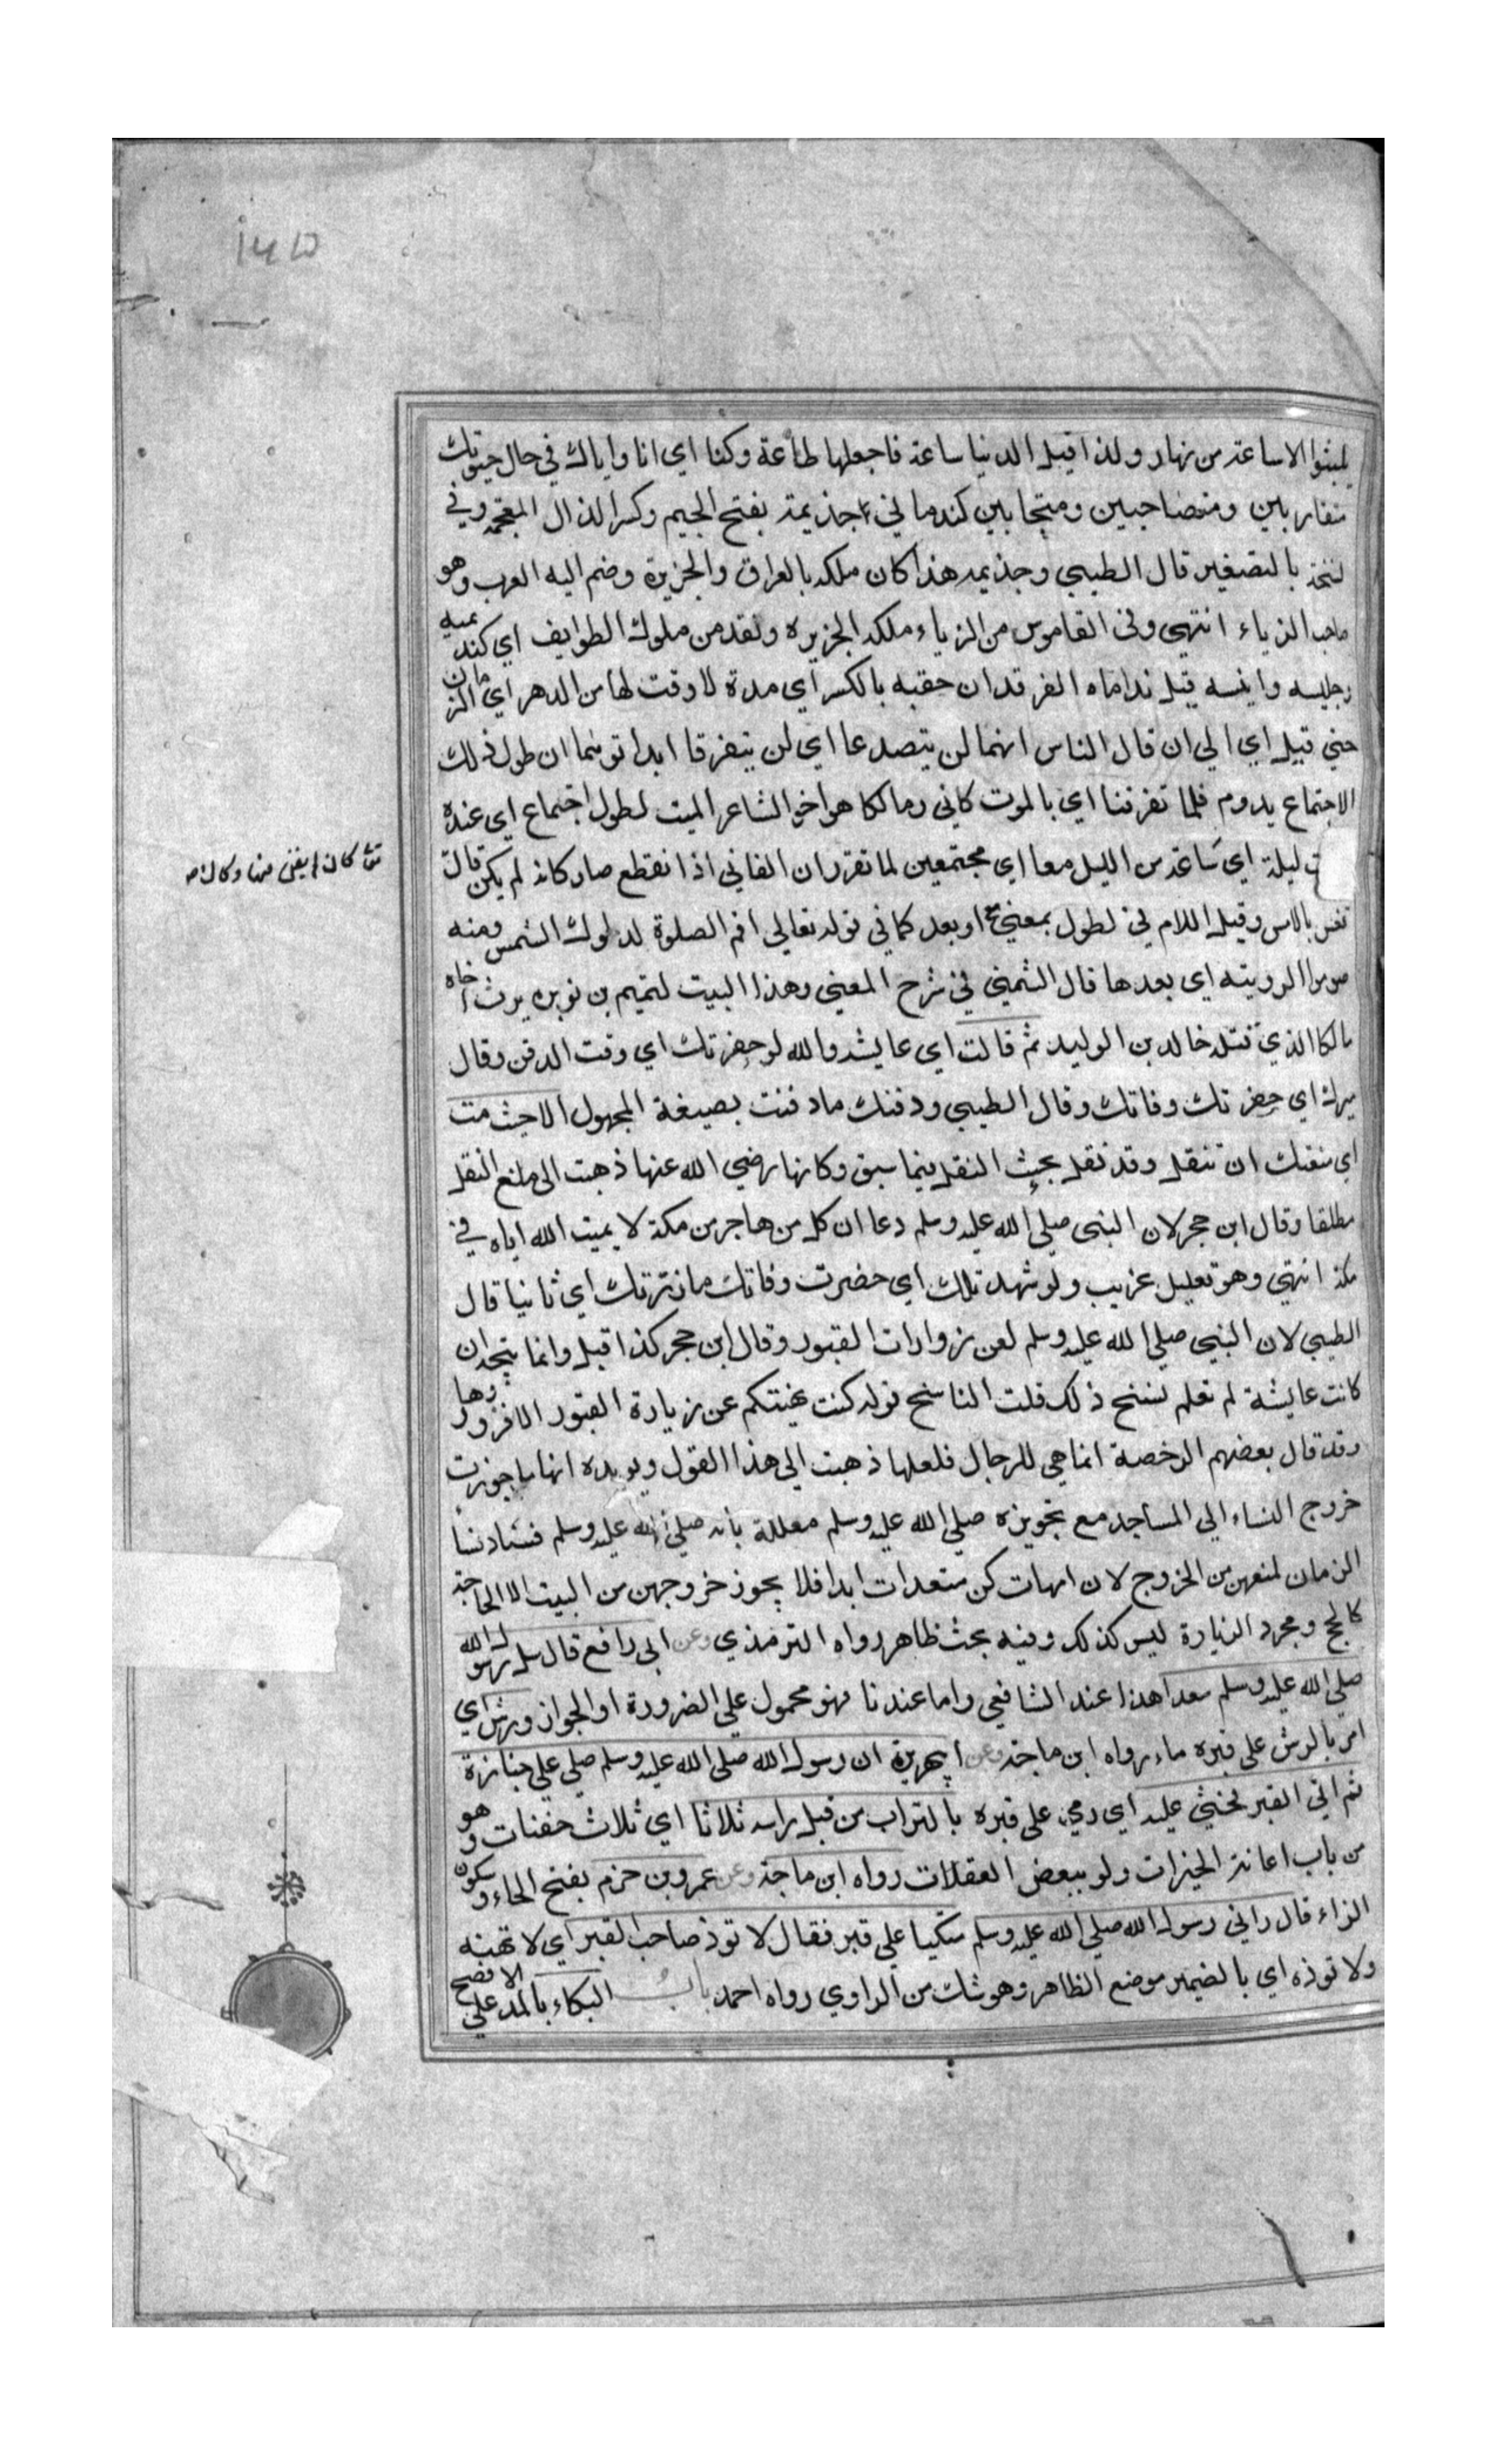 ۱۶۵
يلبثوا الا ساعة من نهار ولذا قيل الدنيا ساعة فاجعلها طاعة وكنا اي انا واياك في حال حيوتك
متقاربين ومتصاحبين ومتحابين كندماني جذيمة بفتح الجيم وكسر الذال المعجمة وفي
نسخة بالتصغير قال الطيبي وجذيمه هذا كان ملكه بالعراق والجزيرة وضم اليه العرب وهو
صاحب الزباء انتهى وفي القاموس من الزباء ملكه الجزيره وتعد من ملوك الطوايف اي كنديميه
وجليسه وانيسه قيل نداماه الفرقدان حقبه بالكسر اي مدة لا وقت لها من الدهر اي الزمان
حتي قيل اي الي ان قال الناس انهما لن يتصدعا اي لن يتفرقا ابدا توهما ان طول ذلك
الاجتماع يدوم فلما تفرقنا اي بالموت كاني ومالكا هو اخو الشاعر الميت لطول اجتماع اي عنده
ت ليلة اي ساعة من الليل معا اي مجتمعين لما تقرر ان الفاني اذا انقطع صار كانه لم يكن قال
تغن بالامس وقيل اللام في لطول بمعني مع او بعد كما في قوله تعالي اقم الصلوة لدلوك الشمس ومنه
صوموا لرويته اي بعدها قال الشمني في شرح المغني وهذا البيت لتميم بن نويره يرث اخاه
مالكا الذي قتله خالد بن الوليد ثم قالت اي عايشه والله لو حضرتك اي وقت الدفن وقال
ميرك اي حضرتك وفاتك وقال الطيبي ودفنك ما دفنت بصيغة المجهول الا حيث مت
اي منعتك ان تنقل وقد نقل بحث النقل فيما سبق وكانها رضي الله عنها ذهبت الى منع النقل
مطلقا وقال ابن حجر لان النبى صلي الله عليه وسلم دعا ان كل من هاجر من مكة لا يميت الله اياه في
مكة انتهي وهو تعليل غريب ولو شهدتك اي حضرت وفاتك ما زرتك اي ثانيا قال
الطيبي لان النبي صلي الله عليه وسلم لعن زوارات القبور وقال ابن حجر كذا قيل وانما يتجه ان
كانت عايشة لم تعلم بنسخ ذلك قلت الناسخ قوله كنت نهيتكم عن زيارة القبور الا فزوروها
وقد قال بعضهم الرخصة انما هي للرجال فلعلها ذهبت الي هذا القول ويويده انها ما جوزت
خروج النساء الي المساجد مع تجويزه صلي الله عليه وسلم معللة بانه صلي الله عليه وسلم نساء
الزمان لمنعهن من الخروج لان امهات كن متعدات ابدا فلا يجوز خروجهن من البيت الا لحاجة
كالحج ومجرد الزيارة ليس كذلك وفيه بحث ظاهر رواه الترمذي وعن ابى رافع قال سل رسول الله
صلي الله عليه وسلم سعدا هذا عند الشافعي واما عندنا فهو محمول علي الضرورة او الجواز ورش اي
امر بالرش علي قبره ماء رواه ابن ماجة وعن ابي هريرة ان رسول الله صلى الله عليه وسلم صلي علي جنازة
ثم اتي القبر فحثي عليه اي رمي علي قبره بالتراب من قبل راسه ثلاثا اي ثلاث حفنات وهو
من باب اعانة الخيرات ولو ببعض رواه ابن ماجة وعن عمرو بن حزم بفتح الحاء وسكون
الزاء قال راني رسول الله صلي الله عليه وسلم متكيا علي قبر فقال لا توذ صاحب القبر اي لا تهنه
ولا توذه اي بالضمير موضع الظاهر وهو شك من الراوي رواه احمد باب البكاء بالمد علي الافصح